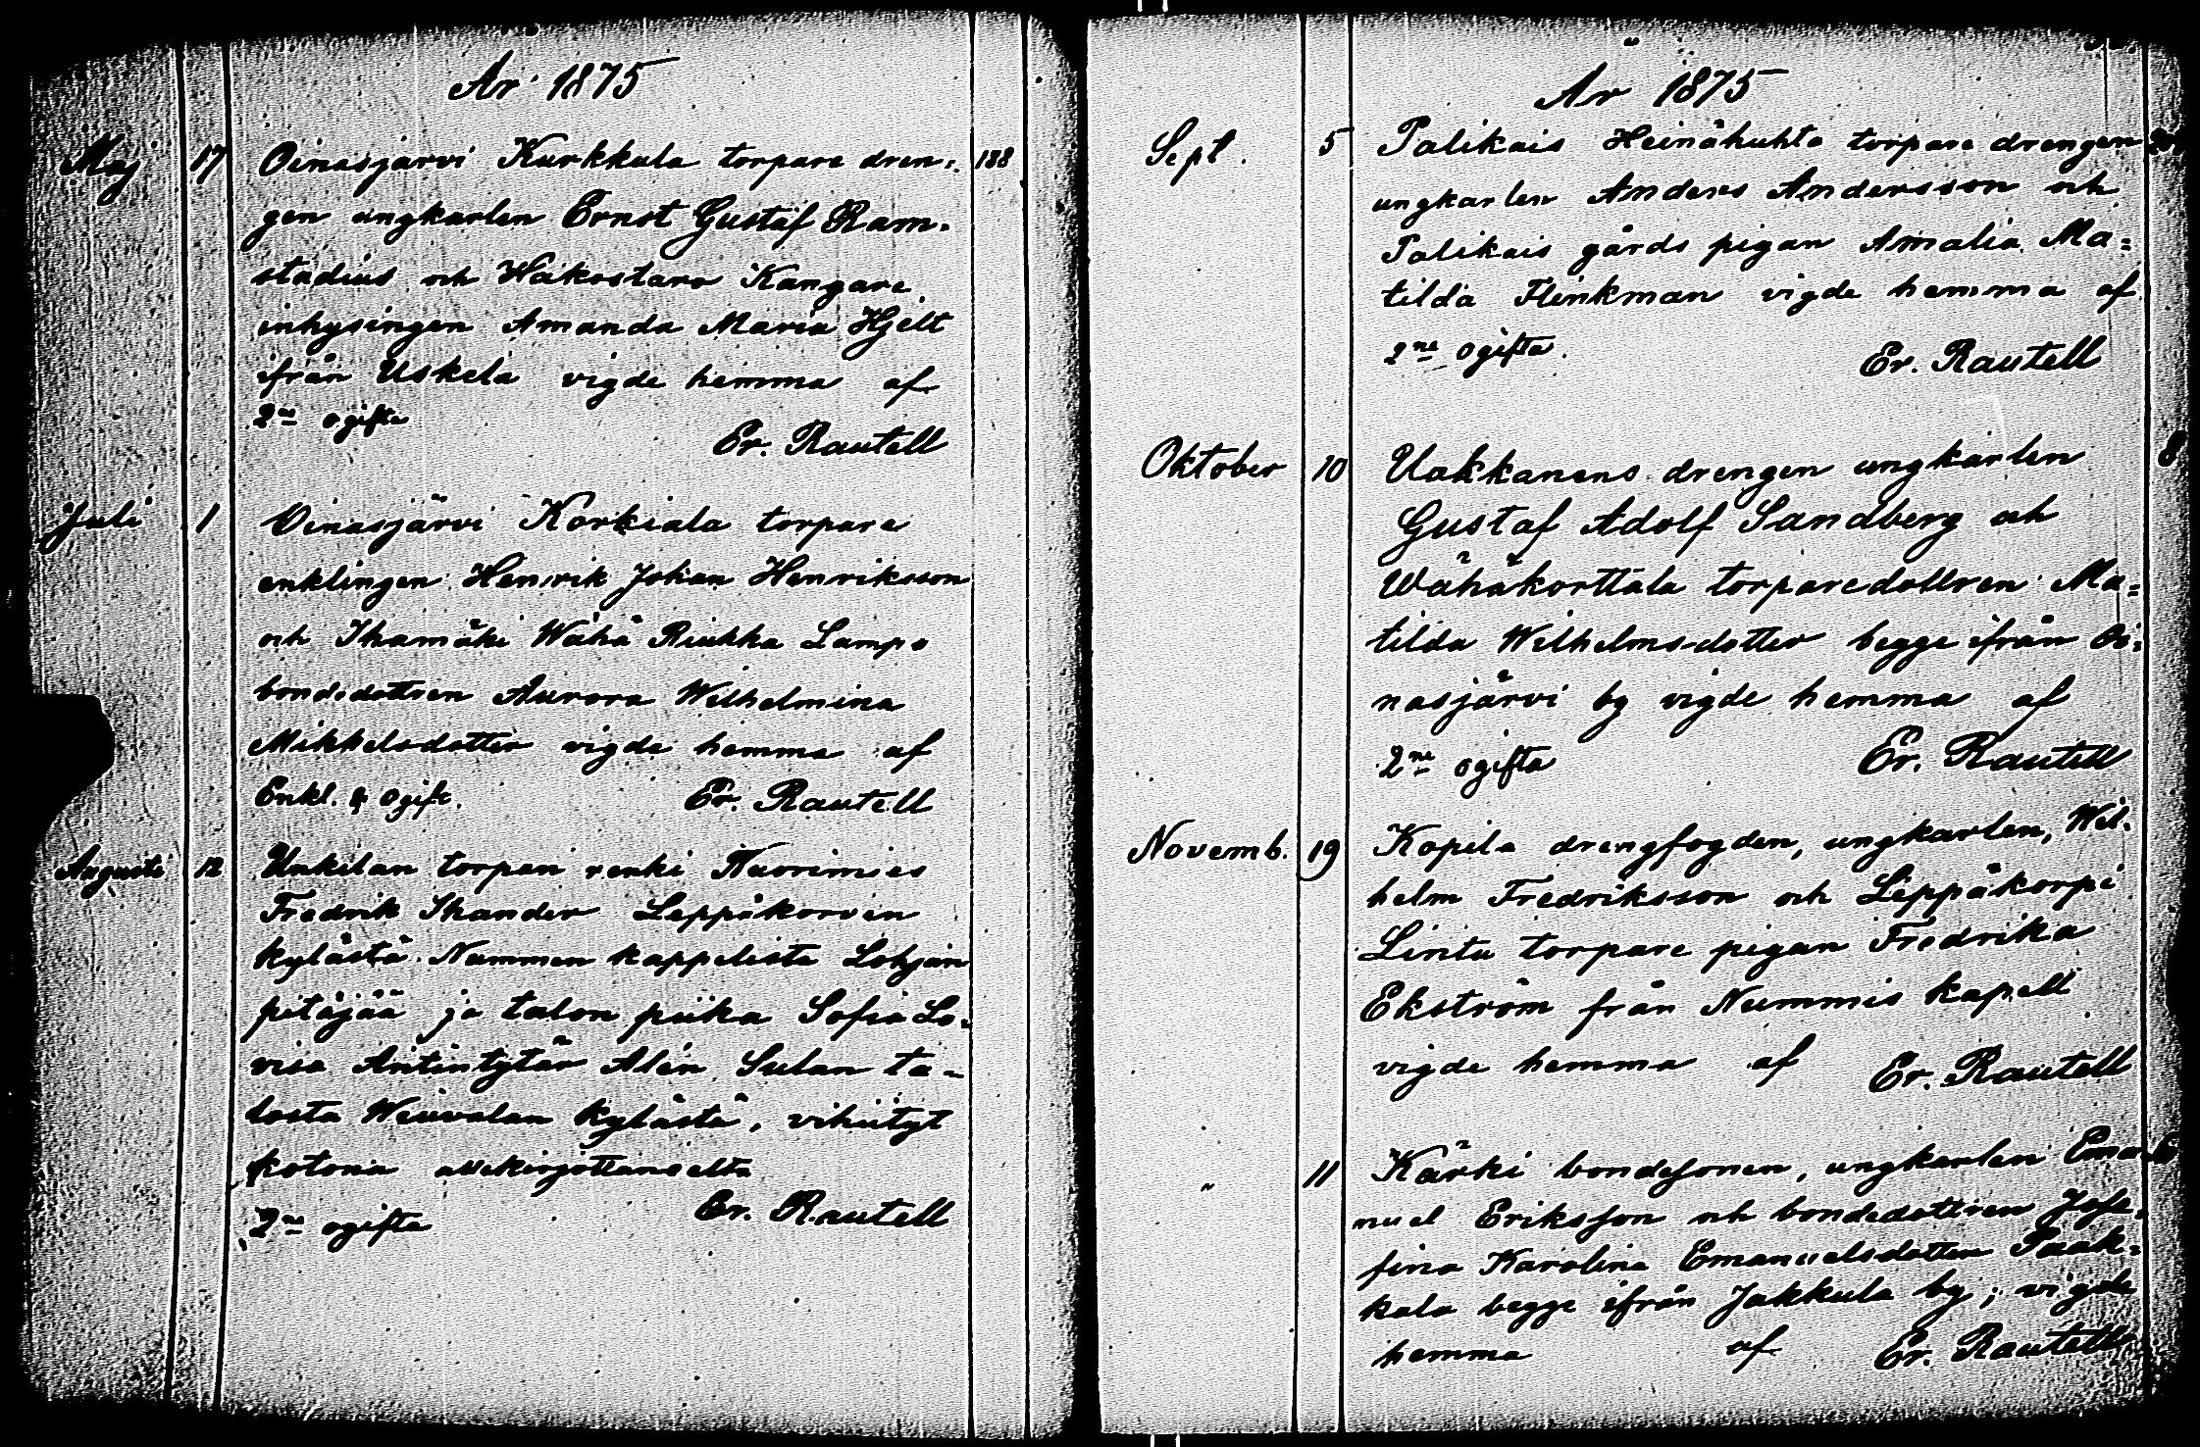 År 1875
Maj 17 Oinasjärvi Kurkkula torpare dren= 188
gen ungkarlen Ernst Gustaf Ram=
stadius och Wakostaro Kangare
inhysingen Amanda Maria Hjelt
ifrån Uskela vigde hemma af
2ne ogifta
Er. Rautell
Juli 1 Oinasjärvi Korkiala torpare
enklingen Henrik Johan Henriksson
och Ikamäki Wähä Riukka Lamps
bondedottren Aurora Wilhelmina
Mikkelsdotter vigde hemma af
Enkl. & ogift. Er. Rautell
Augusti 12 Unkilan torpan renki Nuorimies
Fredrik Ikander Leppäkorven
kylästä Nummen kappelista Lohjan
pitäjää ja talon piika Sofia Lo=
visa Antintytär Alén Sulan ta=
losta Weivalan kylästä, vihityt
kotona allekirjottaneelta
2ne ogifta Er. Rautell
År 1875
Sept. 5 Palikais Heinähuhta torpare drengen
ungkarlen Anders Andersson och
Palikais gårds pigan Amalia Ma=
tilda Flinkman vigde hemma af
2ne ogifta.
Er. Rautell
Oktober 10 Uakkanens drengen ungkarlen 8
Gustaf Adolf Sandberg och
Wähäkorttala torparedottren Ma=
tilda Wilhelmsdotter begge ifrån Oi=
nasjärvi by vigde hemma af
2ne ogifta Er. Rautell
Novemb. 19 Kopila drengfogden, ungkarlen, Wil=
helm Fredriksson och Leppäkorpi
Lintu torpare pigan Fredrika
Ekström från Nummis kapell
vigde hemma af Er. Rautell
" 11 Kärki bondesonen, ungkarlen Ema=
nuel Eriksson och bondedottren Jose=
fina Karolina Emanuelsdotter Paak=
kala begge ifrån Jakkula by; vigde
hemma af Er. Rautell